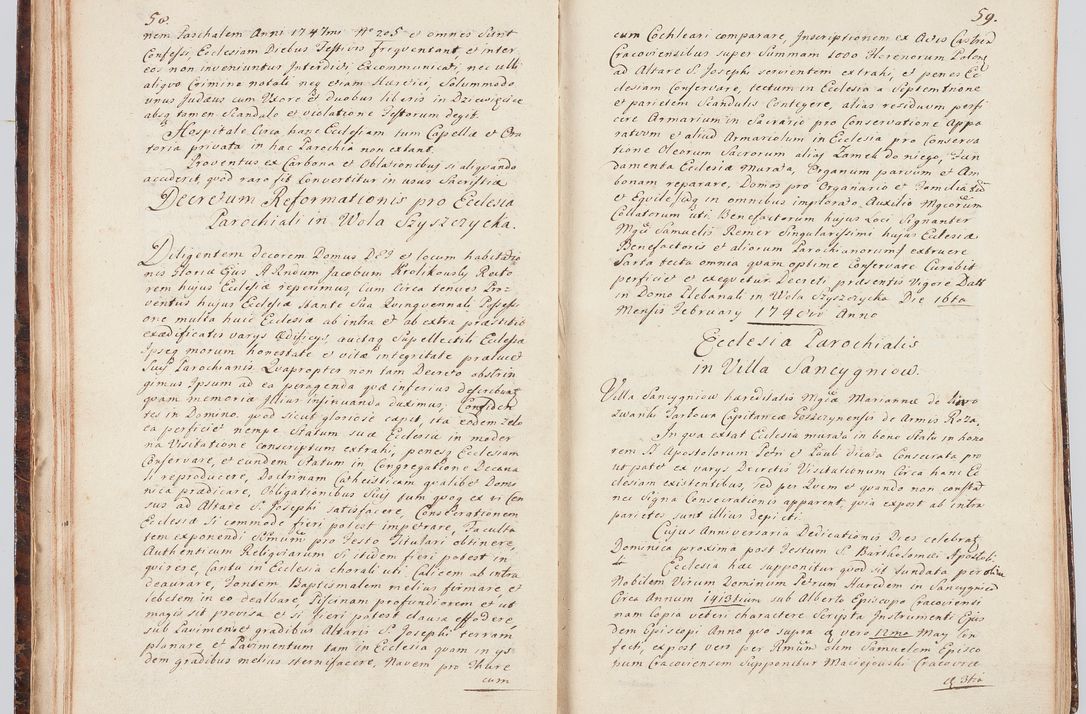 58.
nem Paschalem Anni 1747mi No 205 et omnes sunt
Confessi, Ecclesiam Diebus Festivis freqventant et inter
eos non inveniuntur Interdicti, Excommunicati, nec ulli
aliqvo Crimine notati neq etiam Haeretici, Solummodo
unus Judaeus cum Uxore et duobus liberis in
absq tamen Scandalo et violatione Festorum degit.
Hospitale Circa hanc Ecclesiam tum Capellae et Ora
toria privata in hac Parochia non extant.
Proventus ex Carbona et Oblationibus si aliqvando
acciderit, qvod raro fit Convertitur in usus Sacristiae
Decretum Reformationis pro Ecclesia
Parochiali in Wola Szyszczycka.
Diligentem decorem Domus DEI et locum habitatio
nis Gloriae Ejus A Rndum Jacobum Krolikowsky Recto
rem hujus Ecclesiae reperimus, Cum Circa tenues Pro
ventus hujus Ecclesiae stante sua Quinquennali Possessi
one multa huic Ecclesiae ab intra et ab extra praestitit
exaedificatis varys Aedificys, auctaq Supellectili Ecclesiae
Ipseq morum honestate et vitae integritate praelucet
Suis Parochianis. Qvapropter non tam Decreto abstrin
gimus Ipsum ad ea peragenda qvae inferius describunt
qvam memoriae Illius insinuanda duximus, Confiden
tes in Domino, qvod sicut gloriose coepit, ita eodem zelo
ea perficiet nempe Statum suae Ecclesiae in moder
na Visitatione Conscriptum extrahi, penesq Ecclesiam
Conservare, et eundem Statum in Congregatione Decana
li reproducere, Doctrinam Catheisticam qvalibet Domi
nica praedicare, Obligationibus suis tum qvoq ex vi Cen
sus ad Altare S. Josephi satisfacere, Consecrationem
Ecclesiae si commode fieri potest impetrare, Faculta
tem exponendi SSmum pro Festo Titulari obtinere,
Authenticum Reliqviarum si itidem fieri potest in
qvirere, Cantu in Ecclesia chorali uti, Calicem ab intra
deaurare, Fontem Baptismalem melius firmare, et
lebetem in eo dealbare Piscinam profundiorem et ut
magis sit provisa et si fieri potest clausa effodere,
sub Pavimento et gradibus Altaris S. Josephi terram
planare, et Pavimentum tam in Ecclesia qvam in ys
dem gradibus melius sternifacere, Navem pro Thure
cum
59.
cum Cochleari comparare, Inscriptionem ex Actis Castren
Cracoviensibus super Summam 1000 Florenorum Polon
ad Altare S. Josephi servientem extrahi, et penes Ec
clesiam Conservare, tectum in Ecclesia a Septemtrione
et parietem Scandulis Contegere, alias residuum perfi
cere Armarium in Sacrario pro Conservatione Appa
ratuum et aliud Armariolum in Ecclesia pro Conserva
tione Oleorum Sacrorum alias Zamek do niego, Fun
damenta Ecclesiae Murata, Organum parvum et Am
bonam reparare, Domos pro Organario et Familia
et Eqvile sicq in omnibus implorato Auxilio Mgcorum
Collatorum uti Benefactorum hujus Loci signanter
Mgci Samuelis Remer Singularissimi hujus Eclesiae
Benefactoris et aliorum Parochianorum] extruere
Sarta tecta omnia qvam optime Conservare Curabit
perficiet et exeqvetur Decreti praesentis Vigore Datt
in Domo Plebanali in Wola Szyszczycka Die 16ta
Mensis February 1748vo Anno
Ecclesia Parochialis
in Villa Sancygniow.
Villa Sancygniow haereditatis Mgcae Mariannae de
zwanki Tarlowa Capitaneae Goszczynensis de Armis Roza.
In qva extat Ecclesia murata in bono Statu in hono
rem SS. Apostolorum Petri et Pauli dicata Consecrata pro
ut patet ex varys Decretis Visitationum Circa hanc Ec
clesiam existentibus, sed per Qvem et qvando non constat
nec Signa Consecrationis apparent, qvia expost ab intra
parietes sunt illius depicti.
Cujus Anniversaria Dedicationis Dies celebrat
Dominica proxima post Festum S. Bartholomaei Apostoli
Ecclesia haec supponitur qvod sit fundata per olim
Nobilem Virum Dominum Petrum Haeredem in Sancygniow
Circa Annum sub Alberto Episcopo Cracoviensi
nam Copia veteri charactere Scripta Instrumenti Ejus
dem Episcopi Anno qvo supra vero 12mo May Con
fecti, expost veri per Rndum olim Samuelem Episco
pum Cracoviensem Supponitur Maciejowski Cracoviae